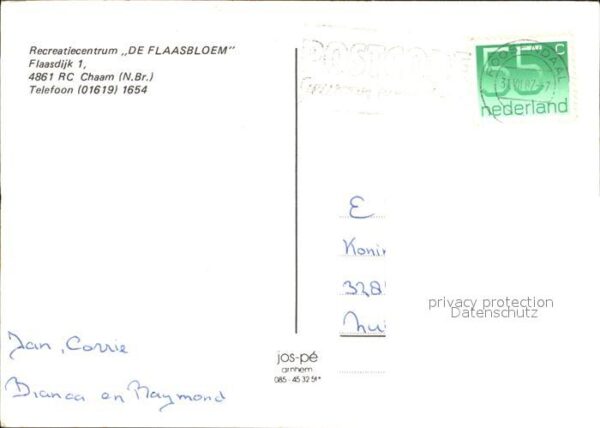 Recreatiecentrum „DE FLAASBLOEM"
Flaasdijk 1,
4861 RC Chaam (N.Br.)
Telefoon (01619) 1654
POSTCODE
55 c
nederland
E
Konin
328
privacy protection
Datenschutz
Jan, Corrie
Bianca en Raymond
jos-pé
arnhem